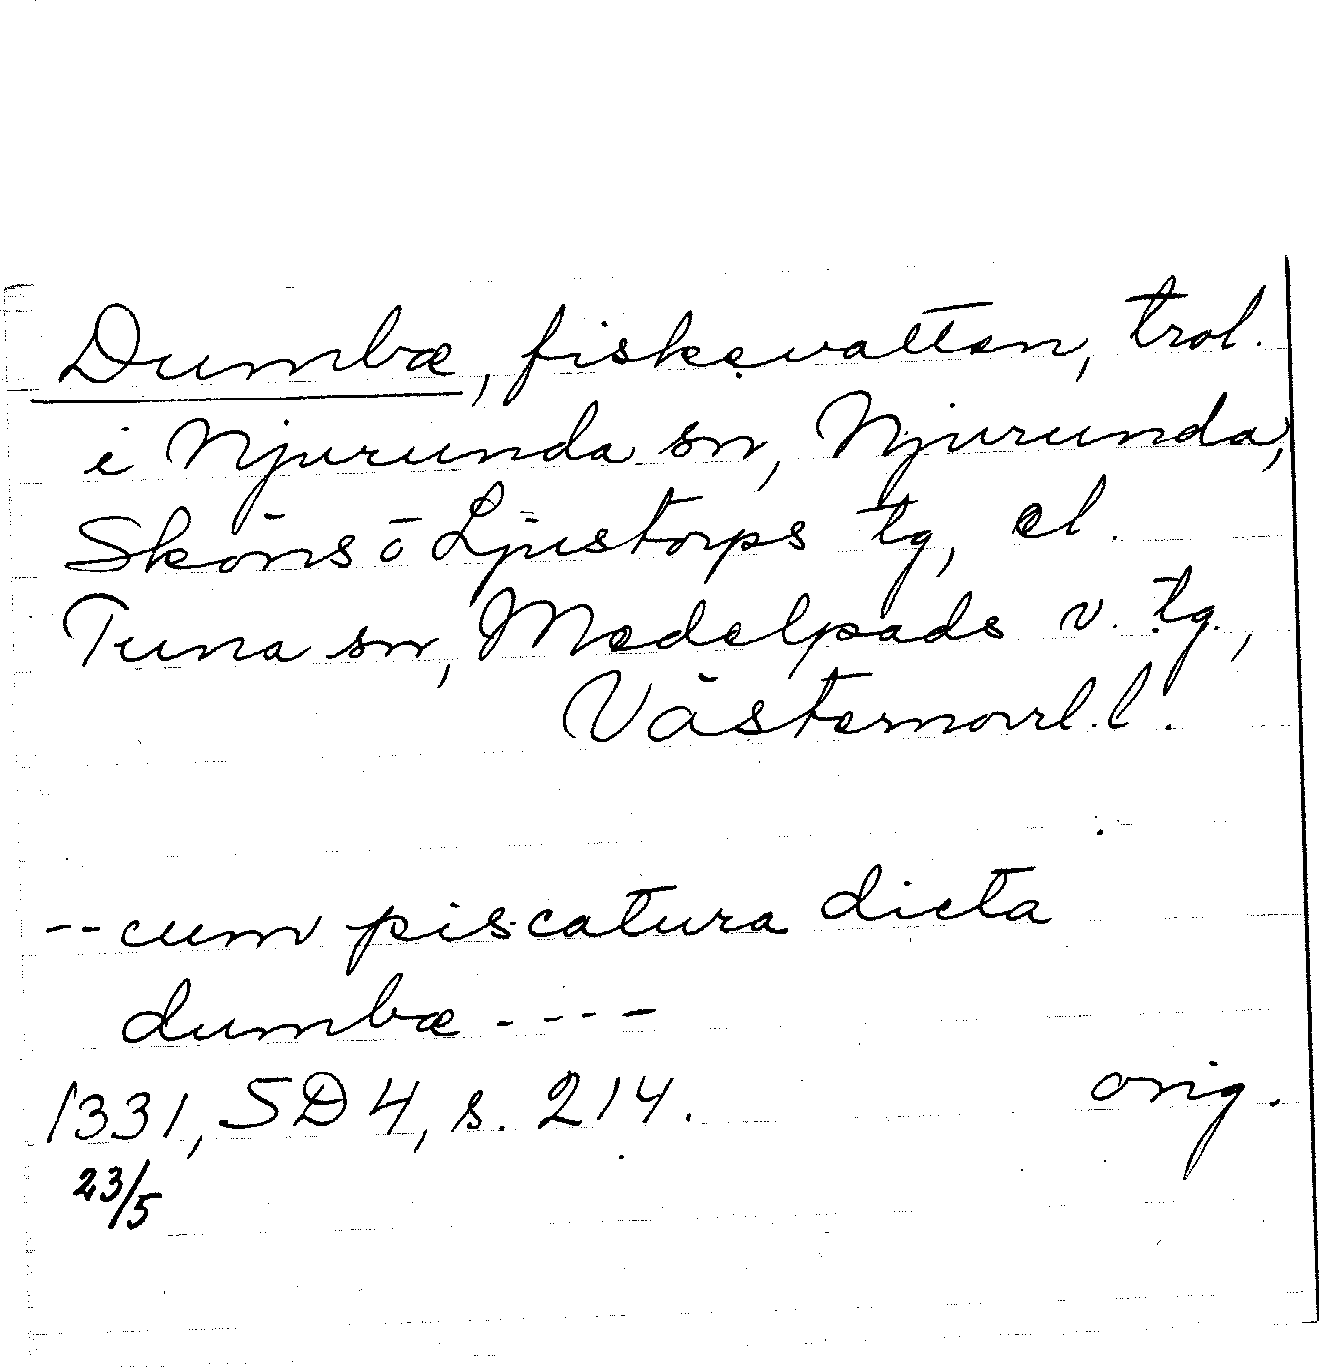 Dumbæ, fiskevatten, trol.
i Njurunda sn, Njurunda,
Sköns o Ljustorps tg, el.
Tuna sn, Medelpads v. tg.,
Västernorrl. l.
-- cum piscatura dicta
dumbæ ----
1331, SD 4, s. 214. orig.
23/5